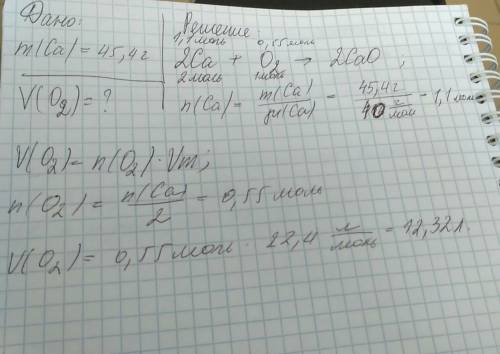 Дано:
m(Ca) = 45,4г
V(O₂) = ?
Решение
1,1 моль 0,55 моль
2Ca + O₂ → 2CaO ;
2 моль 1 моль
n(Ca) = m(Ca) / M(Ca) = 45,4г / 40 г/моль = 1,1 моль
V(O₂) = n(O₂) · Vm;
n(O₂) = n(Ca) / 2 = 0,55 моль
V(O₂) = 0,55 моль · 22,4 л/моль = 12,32 л.